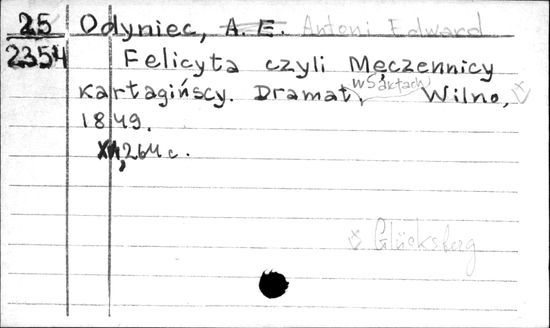 25 Odyniec, A. E. Antoni Edward
2354 Felicyta czyli Męczennicy
Kartagińscy. Dramat, w 5 aktach Wilno,
1849.
XII, 264 c.
Glücksberg